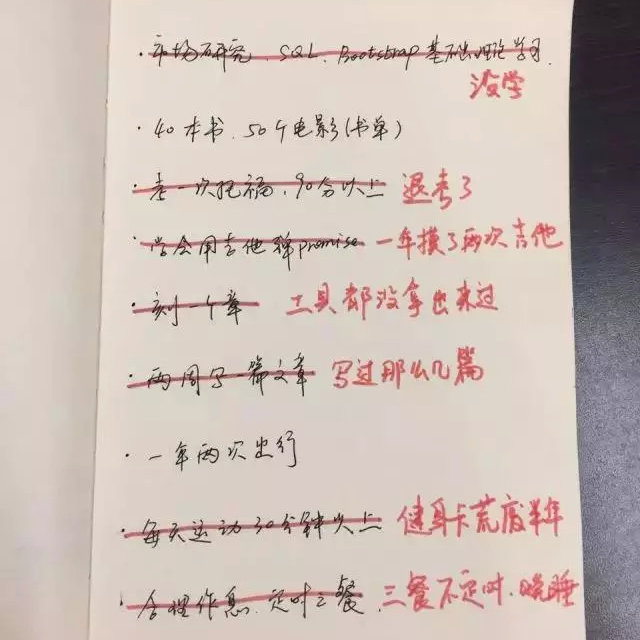 · 市场研究、SQL、Bootstrap 基础理论学习.
没学
· 40本书、50个电影(书单)
· 考一次托福,90分以上 退考了
· 学会用吉他弹promise 一年摸了两次吉他
· 刻一个章 工具都没拿出来过
· 两周写一篇文章 写过那么几篇
· 一年两次出行
· 每天运动30分钟以上 健身卡荒废半年
· 合理作息、定时三餐 三餐不定时、晚睡